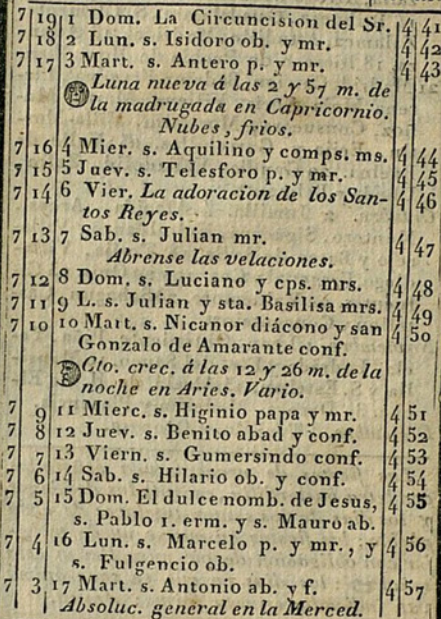 7 19 1 Dom. La Circuncision del Sr. 4 41
7 18 2 Lun. s. Isidoro ob. y mr. 4 42
7 17 3 Mart. s. Antero p. y mr. 4 43
Luna nueva á las 2 y 57 m. de
la madrugada en Capricornio.
Nubes, frios.
7 16 4 Mier. s. Aquilino y comps. ms. 4 44
7 15 5 Juev. s. Telesforo p. y mr. 4 45
7 14 6 Vier. La adoracion de los San- 4 46
tos Reyes.
7 13 7 Sab. s. Julian mr. 4 47
Abrense las velaciones.
7 12 8 Dom. s. Luciano y cps. mrs. 4 48
7 11 9 L. s. Julian y sta. Basilisa mrs. 4 49
7 10 10 Mart. s. Nicanor diácono y san 4 50
Gonzalo de Amarante conf.
Cto. crec. á las 12 y 26 m. de la
noche en Aries. Vario.
7 9 11 Mierc. s. Higinio papa y mr. 4 51
7 8 12 Juev. s. Benito abad y conf. 4 52
7 7 13 Viern. s. Gumersindo conf. 4 53
7 6 14 Sab. s. Hilario ob. y conf. 4 54
7 5 15 Dom. El dulce nomb. de Jesus, 4 55
s. Pablo 1. erm. y s. Mauro ab.
7 4 16 Lun. s. Marcelo p. y mr., y 4 56
s. Fulgencio ob.
7 3 17 Mart. s. Antonio ab. y f. 4 57
Absoluc. general en la Merced.